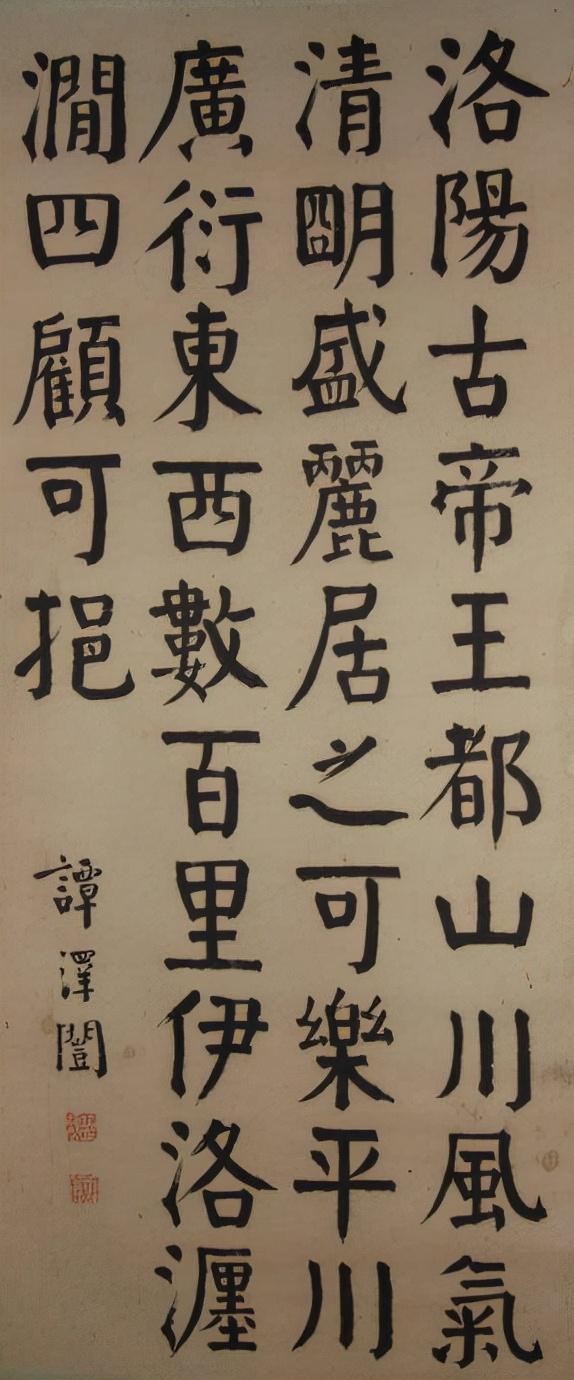 洛陽古帝王都山川風氣
清明盛麗居之可樂平川
廣衍東西數百里伊洛瀍
澗四顧可挹
譚澤闓